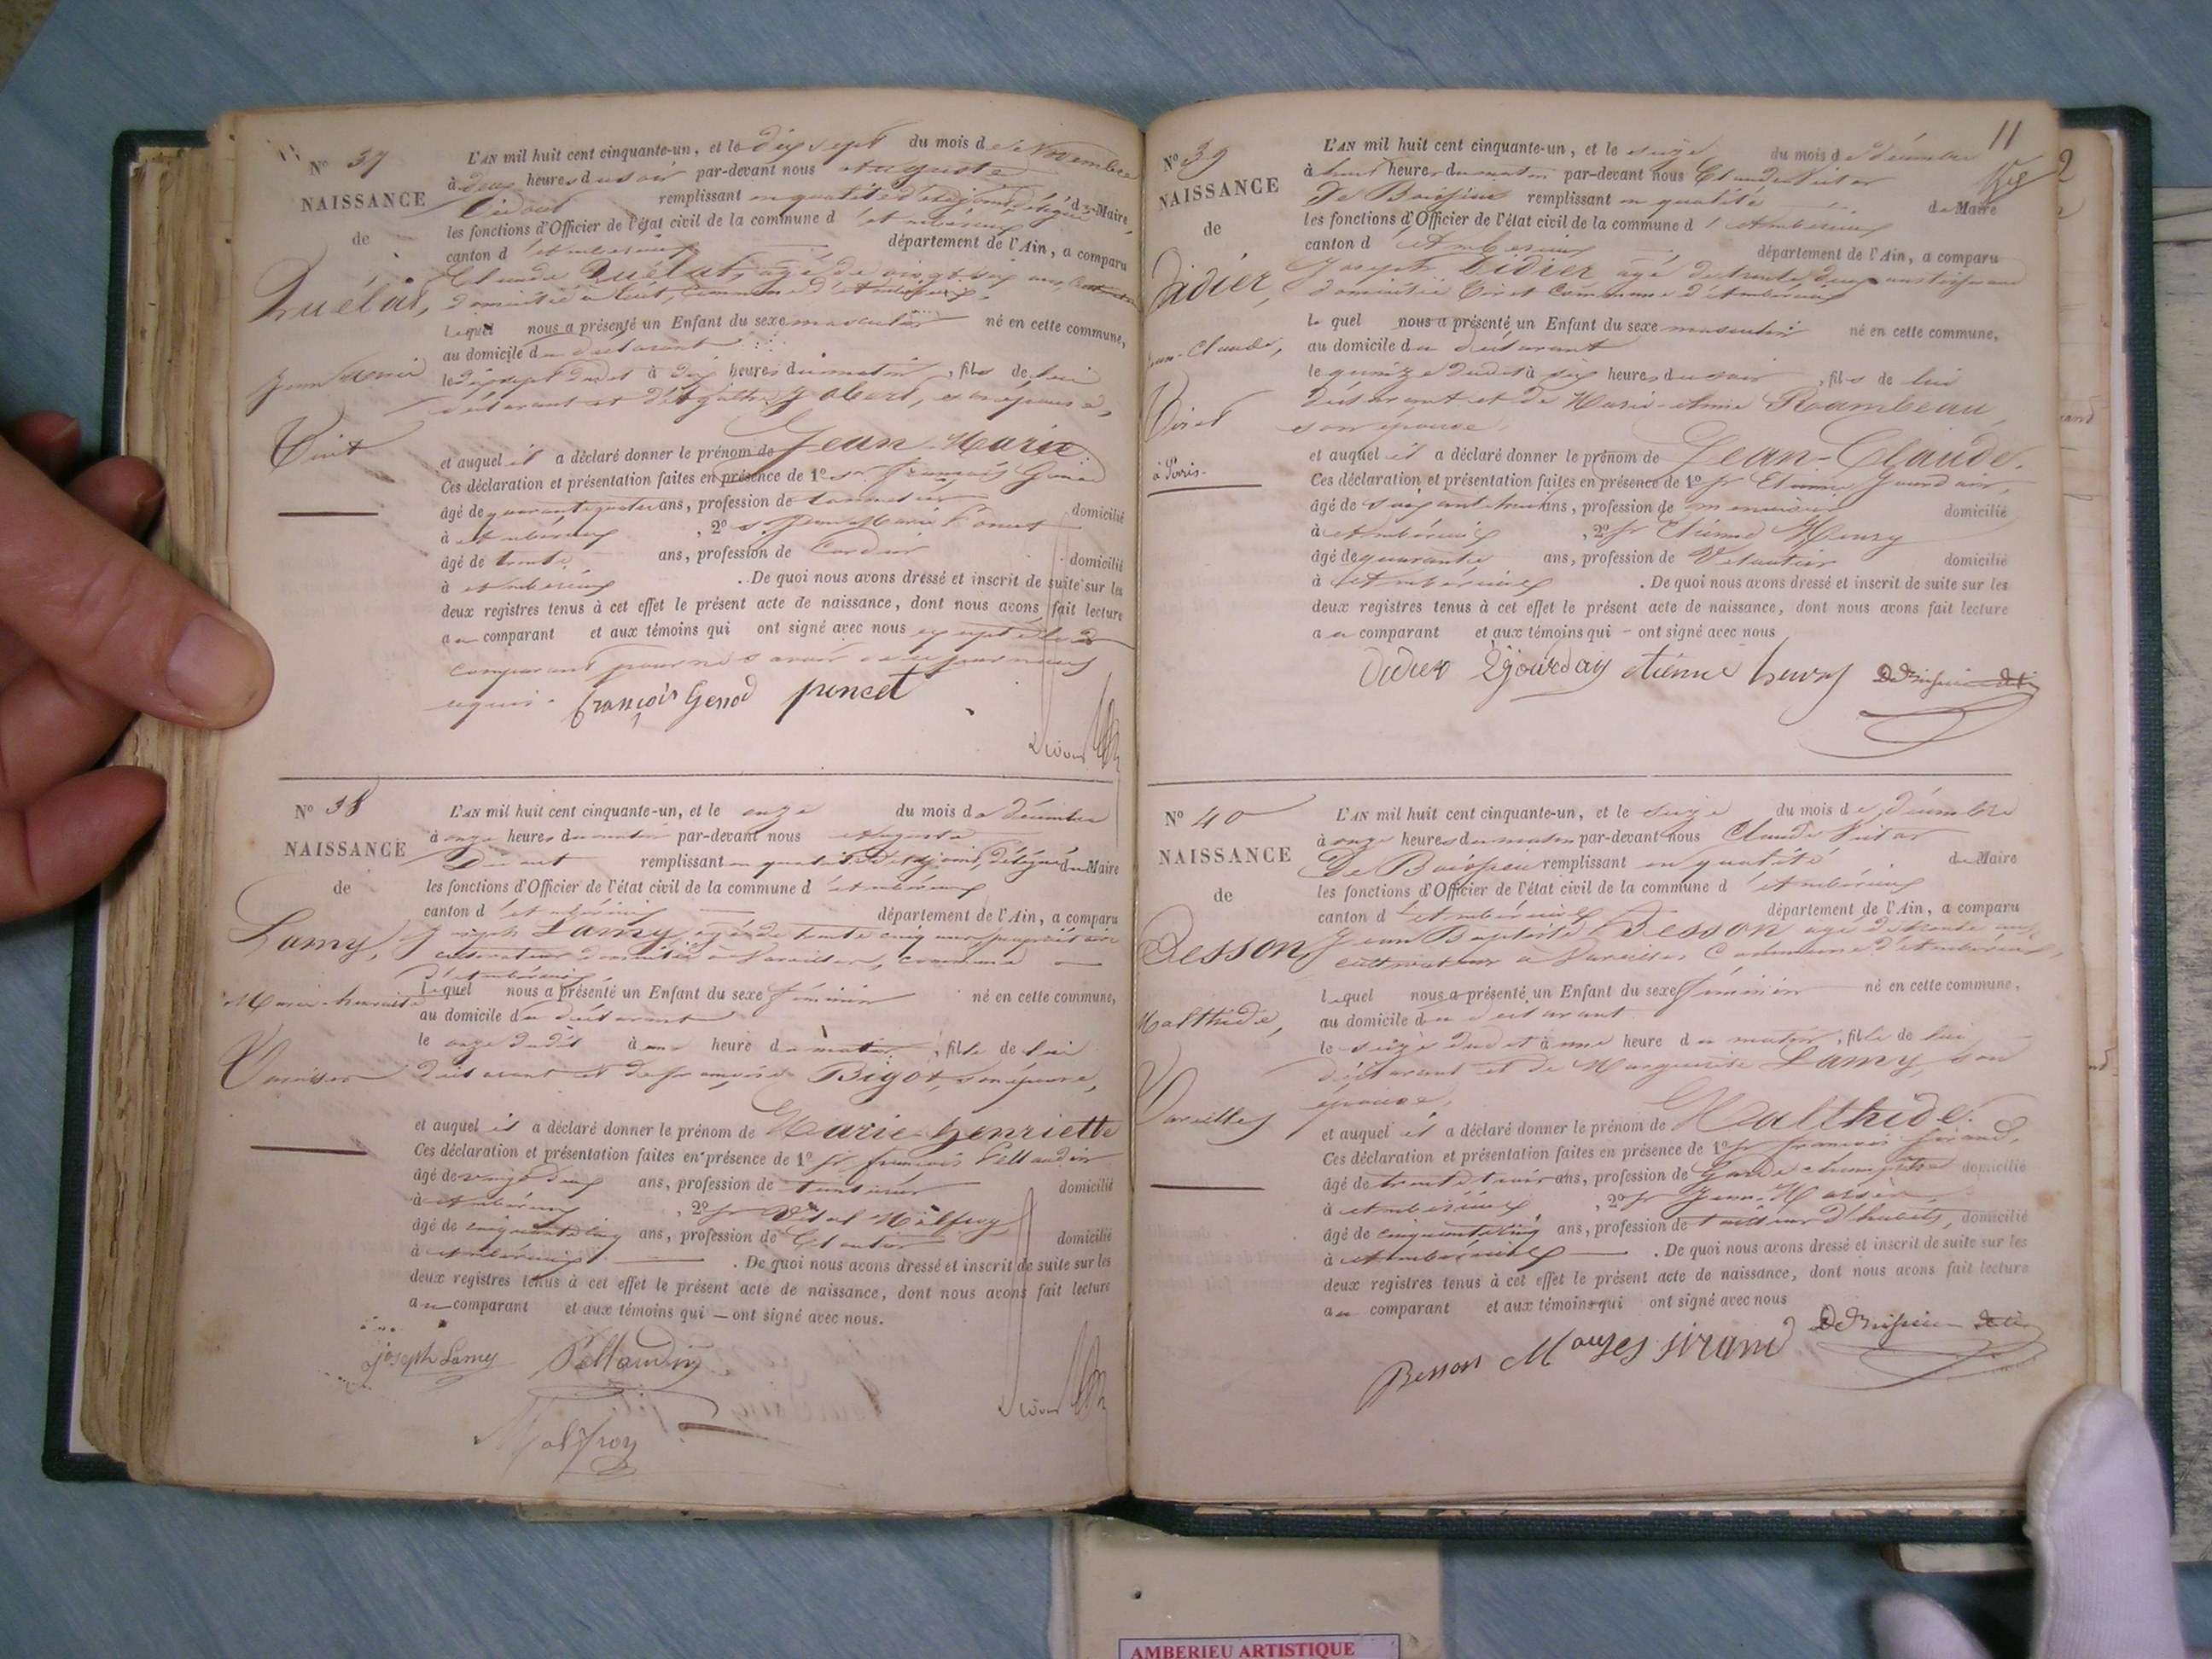 N° 37
NAISSANCE
de
Quélat,
Jean Marie
Tirét
L'AN mil huit cent cinquante-un, et le dix sept du mois de Novembre
à deux heures du soir par-devant nous Auguste
Didout remplissant en qualité d'adjoint délégué du Maire,
les fonctions d'Officier de l'état civil de la commune d'Ambérieux
canton d'Ambérieux département de l'Ain, a comparu
Claude Quélat, agé de vingt six ans,
domicilié à Tirét, commune d'Ambérieux.
Lequel nous a présenté un Enfant du sexe masculin né en cette commune,
au domicile du déclarant
le dix sept dudit à dix heures du matin, fils de lui
déclarant et d'Agathe Jobert, son épouse,
et auquel il a déclaré donner le prénom de Jean-Marie
Ces déclaration et présentation faites en présence de 1° sr François Genod
âgé de quarante quatre ans, profession de tonnelier domicilié
à Ambérieux, 2° sr Jean Marie Poncet
âgé de trente ans, profession de Cordier domicilié
à Ambérieux. De quoi nous avons dressé et inscrit de suite sur les
deux registres tenus à cet effet le présent acte de naissance, dont nous avons fait lecture
au comparant et aux témoins qui ont signé avec nous excepté le
comparant pour ne savoir
requis. François Genod poncet
Didout
N° 38
NAISSANCE
de
Lamy,
Marie-henriette
Vareilles
L'AN mil huit cent cinquante-un, et le onze du mois de décembre
à onze heures du matin par-devant nous Auguste
Didout remplissant en qualité d'adjoint, délégué du Maire
les fonctions d'Officier de l'état civil de la commune d'Ambérieux
canton d'Ambérieux département de l'Ain, a comparu
Joseph Lamy agé de trente cinq ans, propriétaire
cultivateur domicilié à Vareilles, commune
d'Ambérieux
Lequel nous a présenté un Enfant du sexe féminin né en cette commune,
au domicile du déclarant
le onze dudit à une heure du matin, fille de lui
déclarant et de françoise Bigot, son épouse,
et auquel il a déclaré donner le prénom de Marie-henriette
Ces déclaration et présentation faites en présence de 1° sr françois Pellaudin
âgé de vingt deux ans, profession de domicilié
à Ambérieux, 2° sr Vital Malfroy
âgé de cinquante cinq ans, profession de Cloutier domicilié
à Ambérieux. De quoi nous avons dressé et inscrit de suite sur les
deux registres tenus à cet effet le présent acte de naissance, dont nous avons fait lecture
au comparant et aux témoins qui ont signé avec nous.
joseph Lamy Pellaudin
Malfroy
Didout
11
N° 39
NAISSANCE
de
Didier,
Jean-Claude,
Tiret
à Paris
L'AN mil huit cent cinquante-un, et le seize du mois de décembre
à huit heures du matin par-devant nous Claude Victor
De Boissieu remplissant en qualité de Maire
les fonctions d'Officier de l'état civil de la commune d'Ambérieux
canton d'Ambérieux département de l'Ain, a comparu
Joseph Didier agé de trente deux ans
domicilié Tiret Commune d'Ambérieux
Lequel nous a présenté un Enfant du sexe masculin né en cette commune,
au domicile du déclarant
le quinze dudit à six heures du soir, fils de lui
déclarant et de Marie-Anne Rambeau,
son épouse,
et auquel il a déclaré donner le prénom de Jean-Claude.
Ces déclaration et présentation faites en présence de 1° sr Etienne Jourdain,
âgé de soixante huit ans, profession de menuisier domicilié
à Ambérieux, 2° sr Etienne Henry
âgé de quarante ans, profession de Veloutier domicilié
à Ambérieux. De quoi nous avons dressé et inscrit de suite sur les
deux registres tenus à cet effet le présent acte de naissance, dont nous avons fait lecture
au comparant et aux témoins qui ont signé avec nous
Didier Ejourdain étienne henry De Boissieu
N° 40
NAISSANCE
de
Besson,
Malthide,
Vareilles
L'AN mil huit cent cinquante-un, et le seize du mois de décembre
à onze heures du matin par-devant nous Claude Victor
De Boissieu remplissant en qualité de Maire
les fonctions d'Officier de l'état civil de la commune d'Ambérieux
canton d'Ambérieux département de l'Ain, a comparu
Jean Baptiste Besson agé de trente ans
cultivateur à Vareilles Commune d'Ambérieux,
lequel nous a présenté un Enfant du sexe féminin né en cette commune,
au domicile du déclarant
le seize dudit à une heure du matin, fille de lui
déclarant et de Marguerite Lamy, son
épouse,
et auquel il a déclaré donner le prénom de Malthide.
Ces déclaration et présentation faites en présence de 1° sr françois Sirand,
âgé de trente trois ans, profession de Garde champêtre domicilié
à Ambérieux, 2° sr Jean
âgé de cinquante cinq ans, profession de tailleur d'habits, domicilié
à Ambérieux. De quoi nous avons dressé et inscrit de suite sur les
deux registres tenus à cet effet le présent acte de naissance, dont nous avons fait lecture
au comparant et aux témoins qui ont signé avec nous
Besson sirand De Boissieu
AMBERIEU ARTISTIQUE